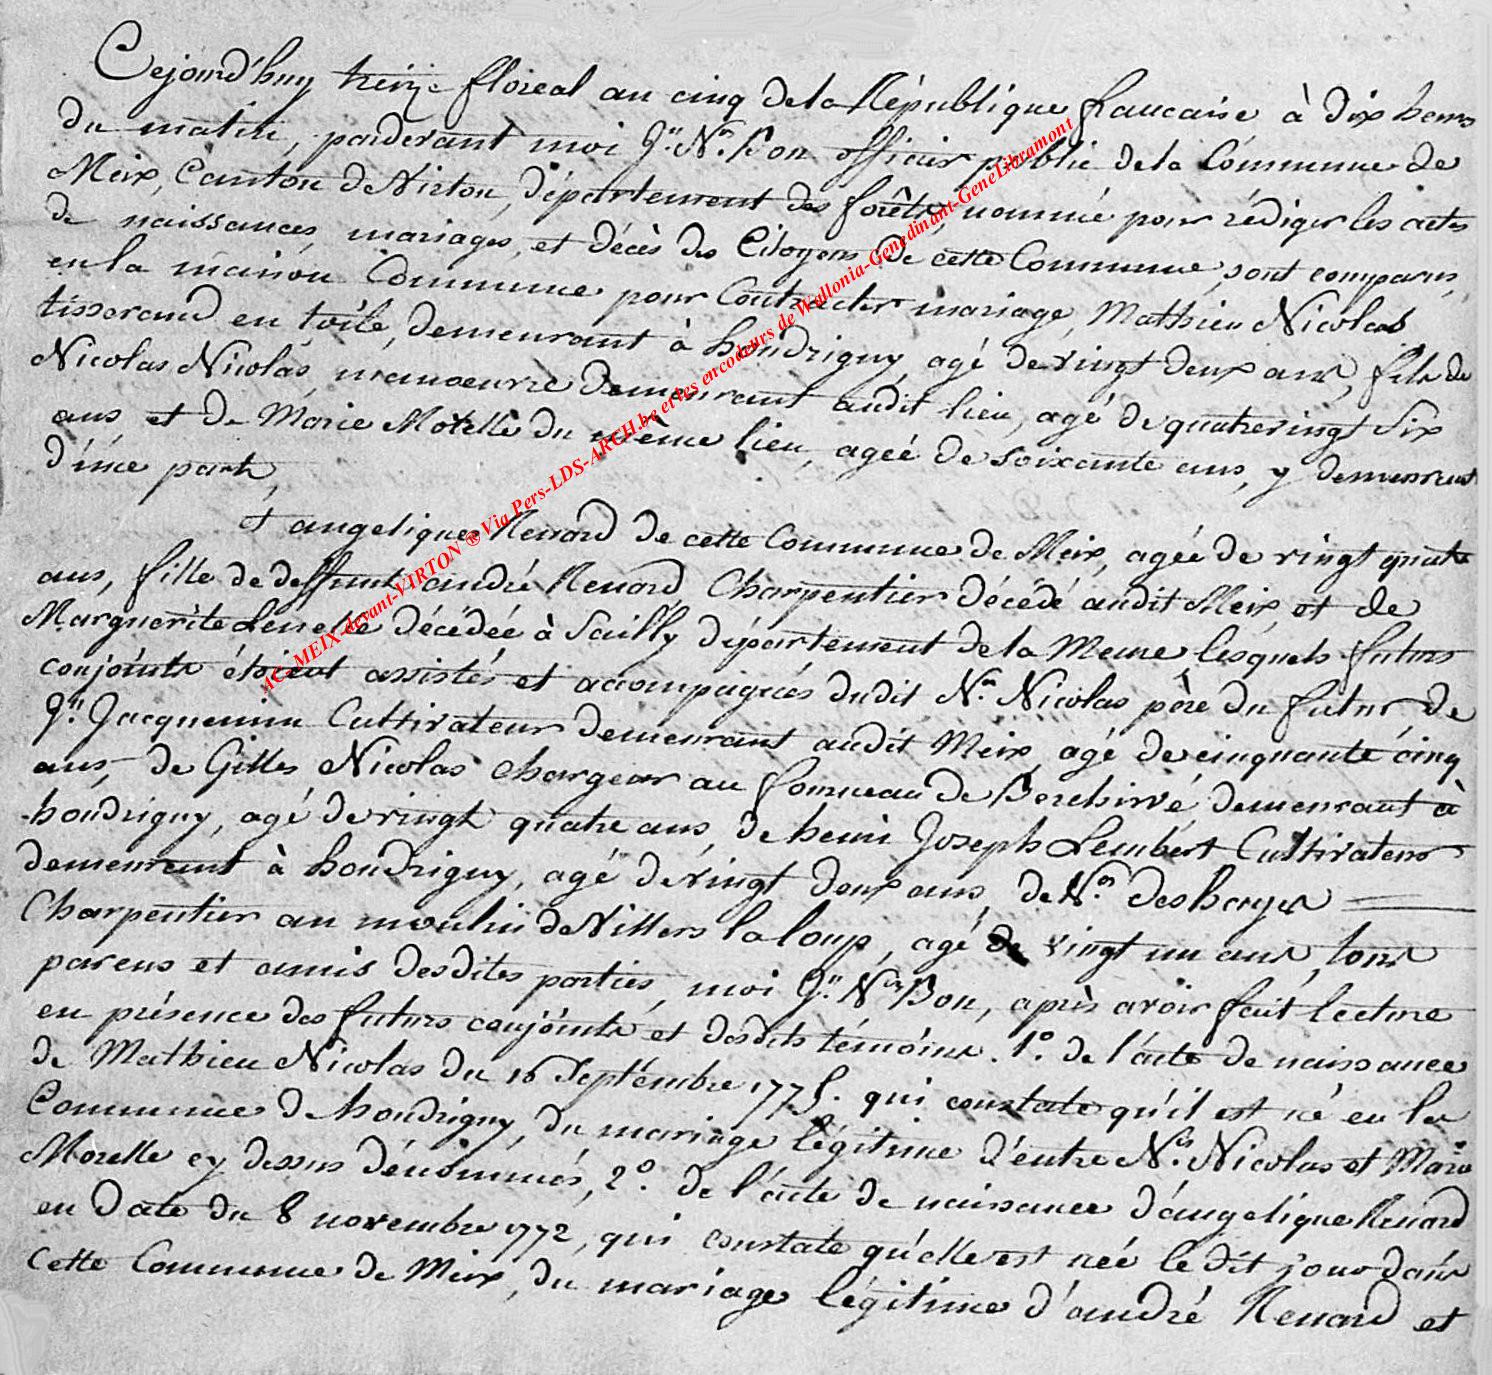 Cejourd'huy treize floreal an cinq de la République francaise à dix heures
du matin, pardevant moi Jn. Ns. Bon officier public de la Commune de
Meix, Canton de Virton, département des forêts, nommé pour rédiger les actes
de naissances, mariages, et décès des Citoyens de cette Commune, sont comparus,
en la maison Commune pour Contracter mariage, Mathieu Nicolas
tisserand en toile, demeurant à houdrigny, agé de vingt deux ans, fils de
Nicolas Nicolas, manoeuvre demeurant audit lieu, agé de quatrevingt Six
ans et de Marie Morelle du même lieu, agée de soixante ans, y demeurant
d'une part,
et angelique Renard de cette Commune de Meix, agée de vingt quatre
ans, fille de deffunt andré Renard Charpentier décédé audit Meix, et de
Marguerite décédée à Sailly département de la Meuse, lesquels futurs
conjoints étoient assistés et accompagnés dudit Ns. Nicolas père du futur, de
Jn. Jacquemin Cultivateur demeurant audit Meix, agé de cinquante cinq
ans, de Gilles Nicolas chargeur au fourneau de Berchivé, demeurant à
houdrigny, agé de vingt quatre ans, de henri Joseph Lembert Cultivateur
demeurant à houdrigny, agé de vingt deux ans, de Ns.
Charpentier au moulin de Villers la loup, agé de vingt un ans, tous
parens et amis desdites parties, moi Jn. Ns. Bon, après avoir fait lecture
en présence des futurs conjoints et desdits témoins. 1º. de l'acte de naissance
de Mathieu Nicolas du 16 Septembre 1775. qui constate qu'il est né en la
Commune de houdrigny, du mariage légitime d'entre Ns. Nicolas et Marie
Morelle cy dessus dénommés, 2º. de l'acte de naissance d'angelique Renard
en date du 8 novembre 1772, qui constate qu'elle est née le dit jour dans
cette Commune de Meix, du mariage légitime d'andré Renard et
AC- MEIX-devant-VIRTON ® Via Pers-LDS-ARCH.be et les encodeurs de Wallonia-Genedinant-GeneLibramont